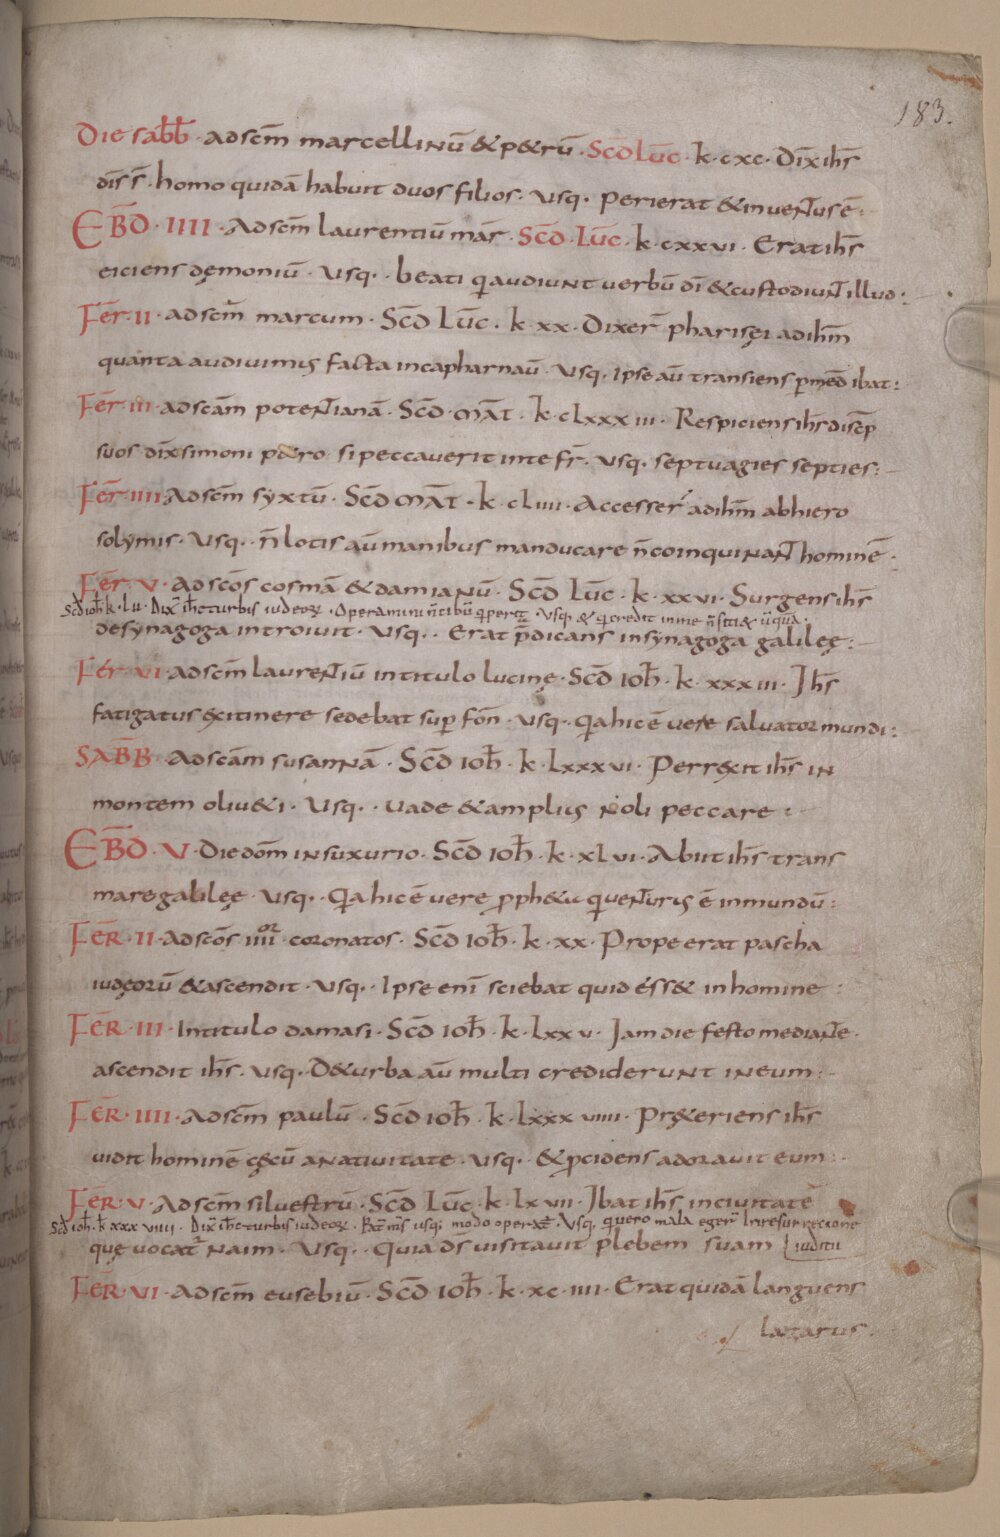 183.
Die sabb̄ · ad scm̄ marcellinū & p&rū · Scd̄ Luc̄ · k · cxc · Dix̄ ih̄s
dis̄ s̄ · homo quidā habuit duos filios · usq · perierat & inuentus ē :
EBD̄ · IIII · Ad scm̄ laurentiū mar̄ · Scd̄ · Luc̄ · k · cxxvi · Erat ih̄s
eiciens dęmoniū · usq · · beati q audiunt uerbū dī & custodiunt illud :
Fer̄ · ii · ad scm̄ marcum · Scd̄ Luc̄ · k · xx · Dixer̄ pharisęi ad ihm̄
quanta audiuimus facta in capharnaū · usq · Ipse aū transiens p med̄ ibat :
Fer̄ · iii · ad scām potentianā · Scd̄ · mat̄ · k · clxxxiii · Respiciens ih̄s discp̄
suos dix̄ simoni p&ro si peccauerit in te fr̄ · usq · septuagies septies :
Fer̄ · iiii · Ad scm̄ syxtū · Scd̄ mat̄ · k · cliiii · Accesser̄ ad ihm̄ ab hiero
solymis · usq · · n̄ lotis aū manibus manducare n̄ coinquinant hominē ·
Fer̄ · v · Ad scōs cosmā & damianū · Scd̄ Luc̄ · k · xxvi · Surgens ih̄s
Scd̄ ioh̄ · k · lii · Dix̄ ihc̄ turbis iudeoꝝ · Operamini n̄ cibū q perit · usq · & q credit in me n̄ siti& ūquā ·
de synagoga introiuit · usq · · Erat p̄dicans in synagoga galileę :
Fer̄ · vi · ad scm̄ laurentiū in titulo lucinę · Scd̄ ioh̄ · k · xxxiii · Ih̄s
fatigatus ex itinere sedebat sup fon̄ · usq · Qa hic ē uere saluator mundi :
SABB̄ · Ad scām susannā · Scd̄ ioh̄ · k · lxxxvi · Perrexit ih̄s in
montem oliu&i · usq · · uade & amplius noli peccare :
EBD̄ · V · Die dom̄ in suxurio · Scd̄ ioh̄ · k · xlvi · Abiit ih̄s trans
mare galileę · usq · · Qa hic ē uere pph&a q uenturus ē in mundū :
FER̄ · II · Ad scōs iiii or coronatos · Scd̄ ioh̄ · k · xx · Prope erat pascha
iudęorū & ascendit · usq · · Ipse enī sciebat quid ess& in homine :
FER̄ · III · In titulo damasi · Scd̄ ioh̄ · k · lxxv · Iam die festo mediante ·
ascendit ih̄s · usq · D& urba aū multi crediderunt in eum :
FER̄ · IIII · Ad scm̄ paulū · Scd̄ ioh̄ · k · lxxxviiii · Pr&eriens ih̄s
uidit hominē cęcū a natiuitate · usq · · & pcidens adorauit eum :
FER̄ · V · Ad scm̄ siluestrū · Scd̄ Luc̄ · k · lxvii · Ibat ih̄s in ciuitatē
Scd̄ ioh̄ · k xxxviiii · Dix̄ ihc̄ turbis iudeoꝝ · Pat̄ m̄s usq modo operat̄ · usq · quero mala eger̄ In resurreccione
quę uocat̄ naim · usq · · Quia dś uisitauit plebem suam iuditii
FER̄ · VI · Ad scm̄ eusebiū · Scd̄ ioh̄ · k · xciiii · Erat quidā languens
lazarus ·